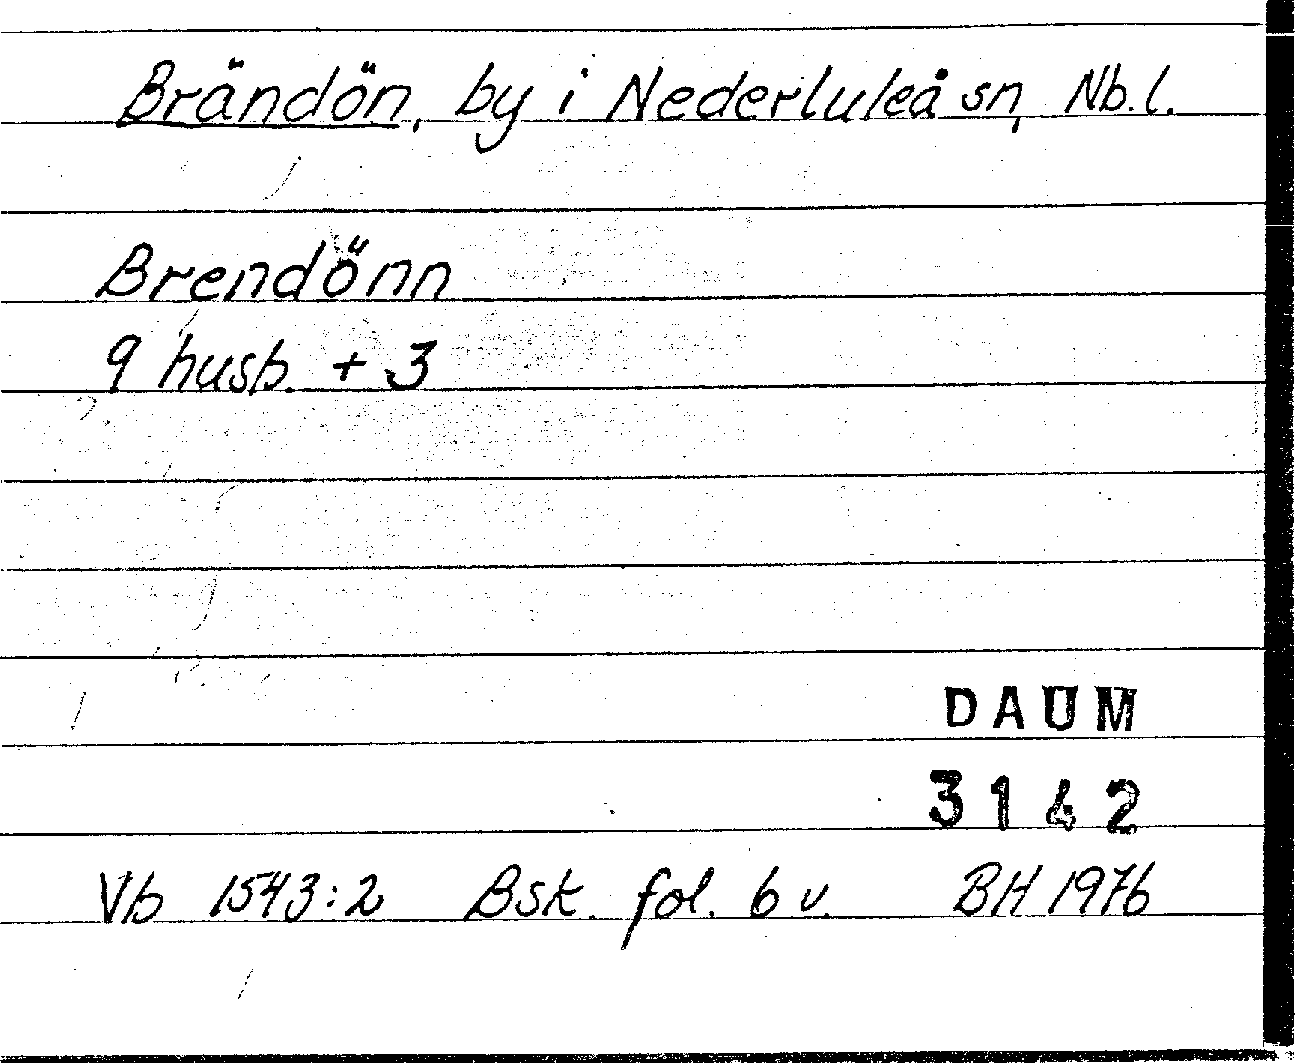 Brändön, by i Nederluleå sn, Nb.l.
Brendönn
9 husb. + 3
DAUM
3142
Vb 1543:2 Bsk. fol. 6 v. BH 1976